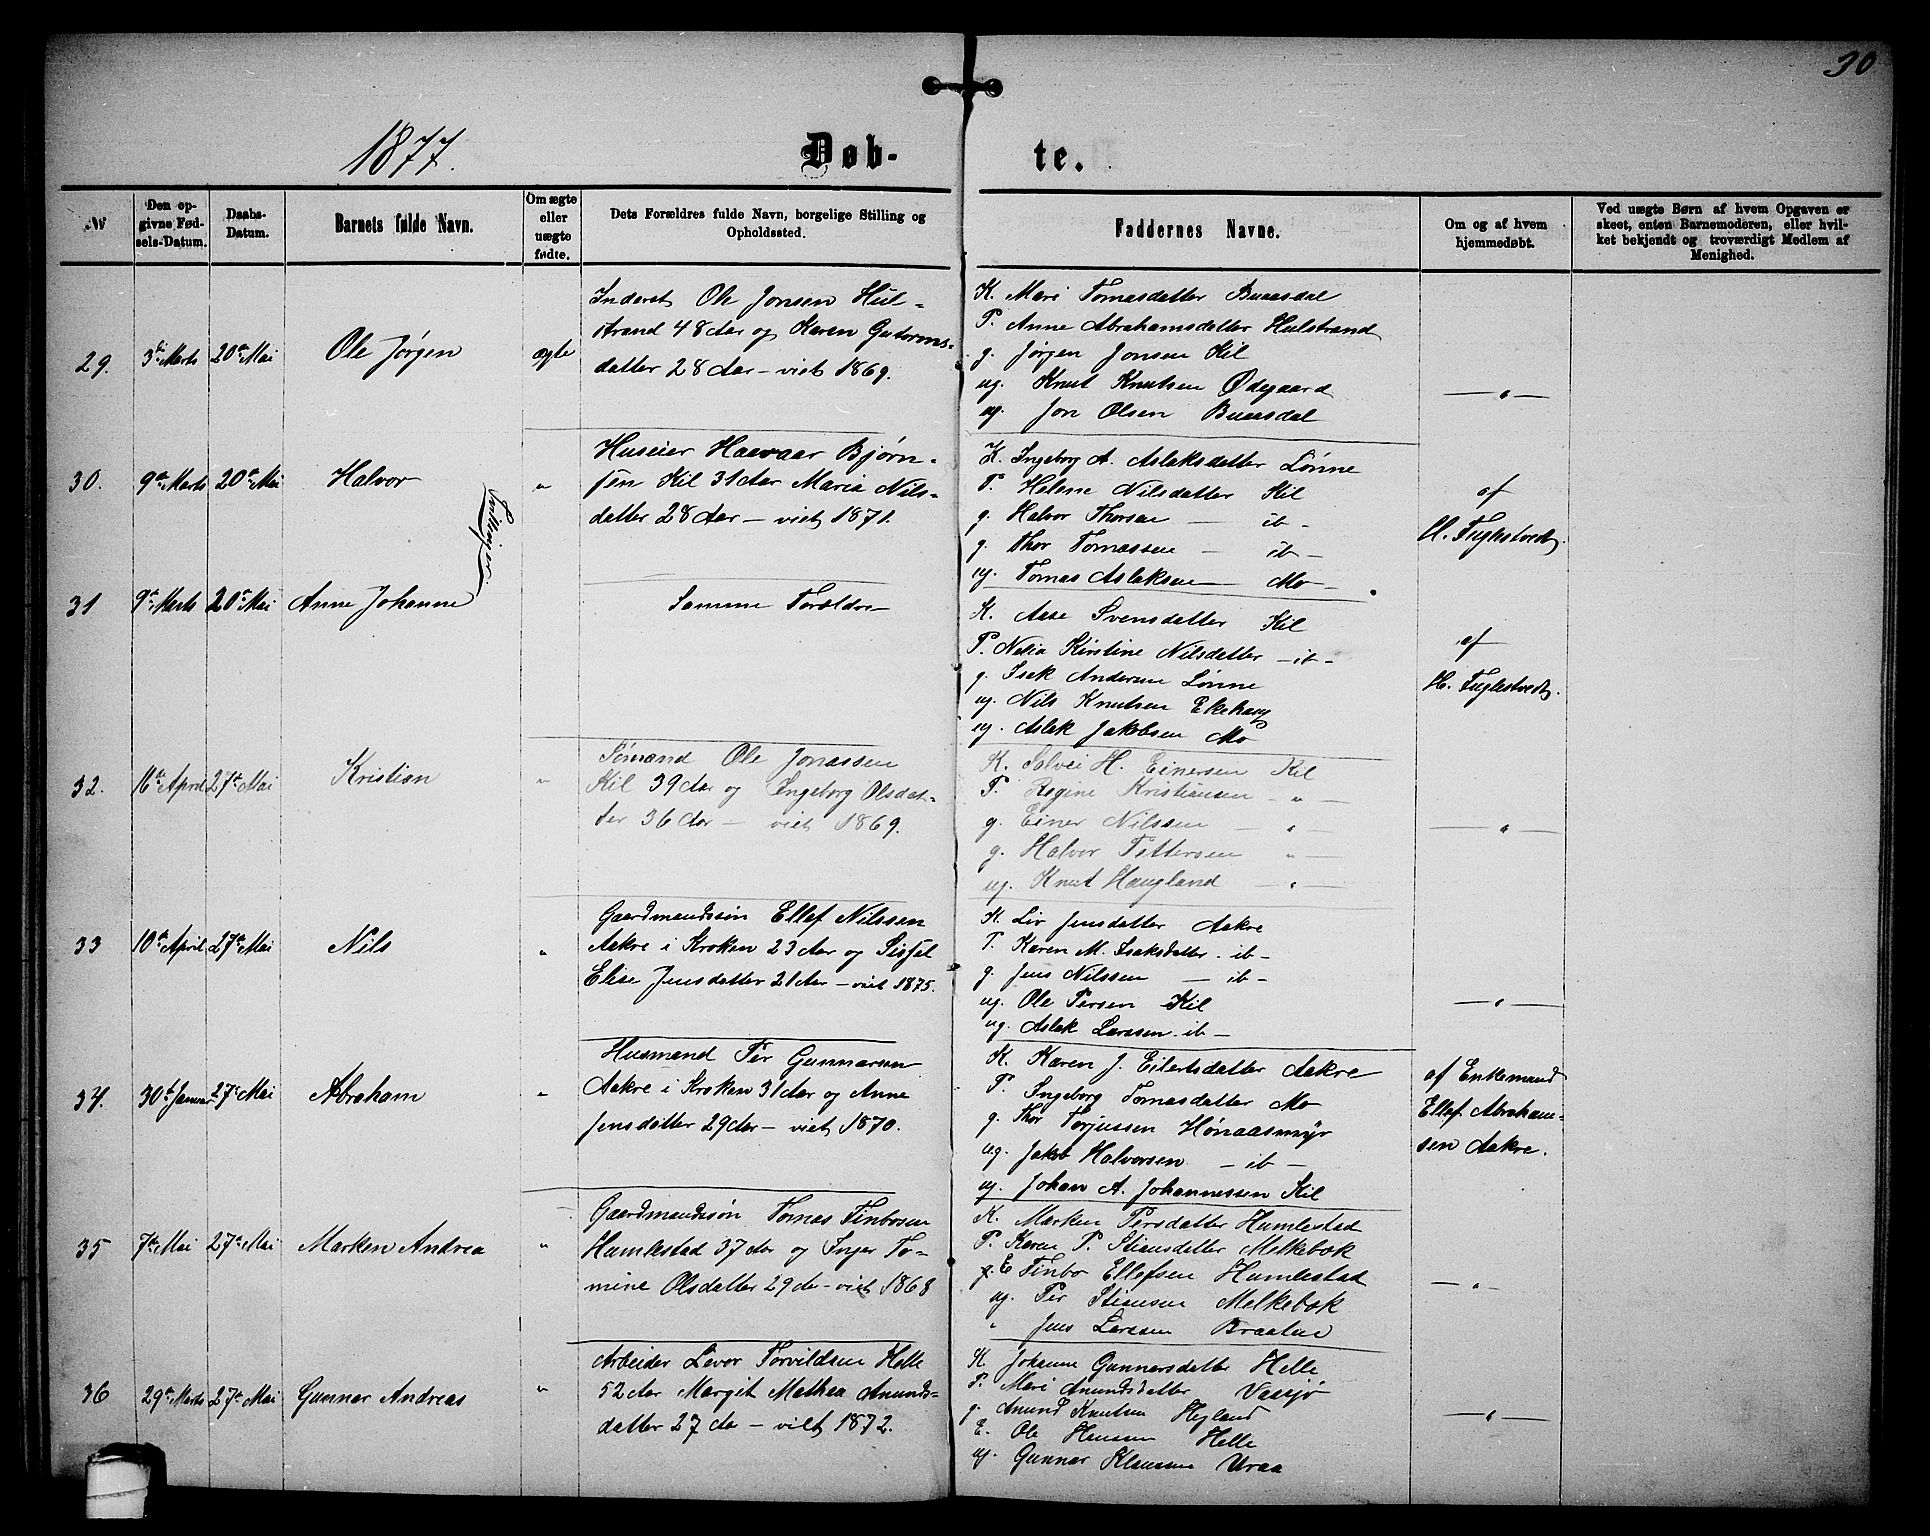 30
1877.
Døb-
te.
№
Den op-
givne Fød-
sels-Datum.
Daabs-
Datum.
Barnets fulde Navn.
Om ægte
eller
uægte
fødte.
Dets Forældres fulde Navn, borgelige Stilling og
Opholdssted.
Faddernes Navne.
Om og af hvem
hjemmedøbt.
Ved uægte Børn af hvem Opgaven er
skeet, enten Barnemoderen, eller hvil-
ket bekjendt og troværdigt Medlem af
Menighed.
29. 3die Marts 20de Mai Ole Jørgen ægte
Inderst Ole Jonsen Hul-
strand 48 Aar og Karen Gutorms-
datter 28 Aar – viet 1869.
K. Mari Tomasdatter Buaasdal
P. Anne Abrahamsdatter Hulstrand
g. Jørgen Jonsen Kil
ug. Knut Knutsen Ødegaard
ug. Jon Olsen Buaasdal
— " —
30. 9de Marts 20de Mai Halvor "
Tvillinger
Huseier Haavaar Bjørn-
sen Kil 31 Aar Maria Nils-
datter 28 Aar – viet 1871.
K. Ingeborg A. Aslaksdatter Lønne
P. Helene Nilsdatter Kil
g. Halvor Thorsen — ib –
g. Thor Tomassen — ib –
ug. Tomas Aslaksen Mo
af
H. Fuglestvedt.
31 9de Marts 20de Mai Anne Johanne
Samme Forældre
K. Aase Svensdatter Kil
P. Nesia Kirstine Nilsdatter – ib –
g. Isak Andersen Lønne
ug. Nils Knutsen Ekehaug
ug. Aslak Jakobsen Mo
af
H. Fuglestvedt.
32. 11te April 27de Mai Kristian "
Sømand Ole Jonassen
Kil 39 Aar og Ingeborg Olsdat-
ter 36 Aar – viet 1869.
K. Solvei H. Einersen Kil
P. Regine Kristiansen – " –
g. Einer Nilssen – " –
g. Halvor Pettersen " –
ug. Knut Haugland – " –
— " —
33 10de April 27de Mai Nils "
Gaardmandssøn Ellef Nilssen
Aakre i Kroken 23 Aar og Sissel
Elise Jensdatter 21 Aar – viet 1875.
K. Liv Jensdatter Aakre
P. Karen M. Isaksdatter – ib –
g. Jens Nilssen — ib –
ug. Ole Persen Kil
ug. Aslak Larssen – ib –
— " —
34. 30te Januar 27de Mai Abraham "
Husmand Per Gunnarsen
Aakre i Kroken 31 Aar og Anne
Jensdatter 29 Aar – viet 1870.
K. Karen J. Eilertsdatter Aakre
P. Ingeborg Tomasdatter Mo
g. Thor Torjussen Hønaasmyr
ug. Jakob Halvorsen – ib –
ug. Johan A. Johannessen Kil
af Enkemand
Ellef Abraham-
sen Aakre.
35 7de Mai 27de Mai Marken Andrea "
Gaardmandssøn Tomas Finbosen
Humlestad 37 Aar og Inger To-
mine Olsdatter 29 Aar – viet 1868
K. Marken Persdatter Humlestad
P. Karen P. Stiansdatter Melkebæk
E Finbo Ellefsen Humlestad
ug. Per Stiansen Melkebæk
" Jens Larssen Braatene
— " —
36 29de Marts 27de Mai Gunnar Andreas "
Arbeider Levor Torvildsen Helle
52 Aar Margit Mathea Anunds-
datter 27 Aar – vilt 1872.
K Johanne Gunnarsdatter Helle
P. Mari Anundsdatter Vassjø
g. Anund Knutsen Hegland
E. Ole Hansen Helle
ug. Gunnar Klaussen Uraa
— " —